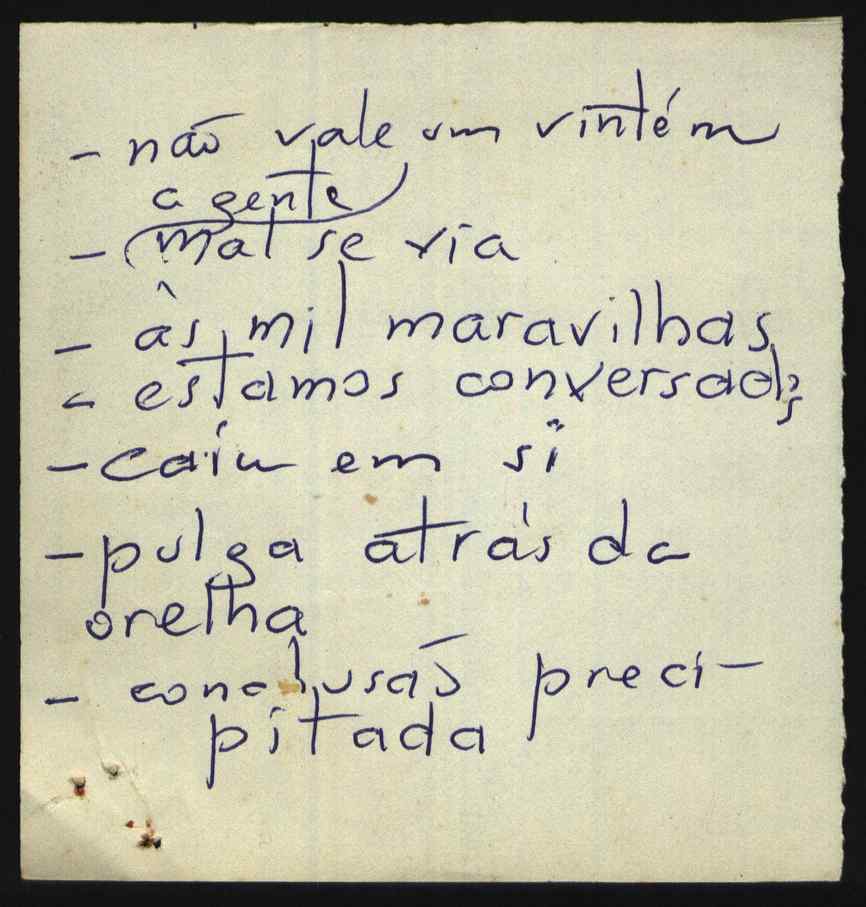 - não vale um vintém
a gente
- mal se via
- às mil maravilhas
- estamos conversados
- caiu em si
- pulga atrás da
orelha
- conclusão preci-
pitada